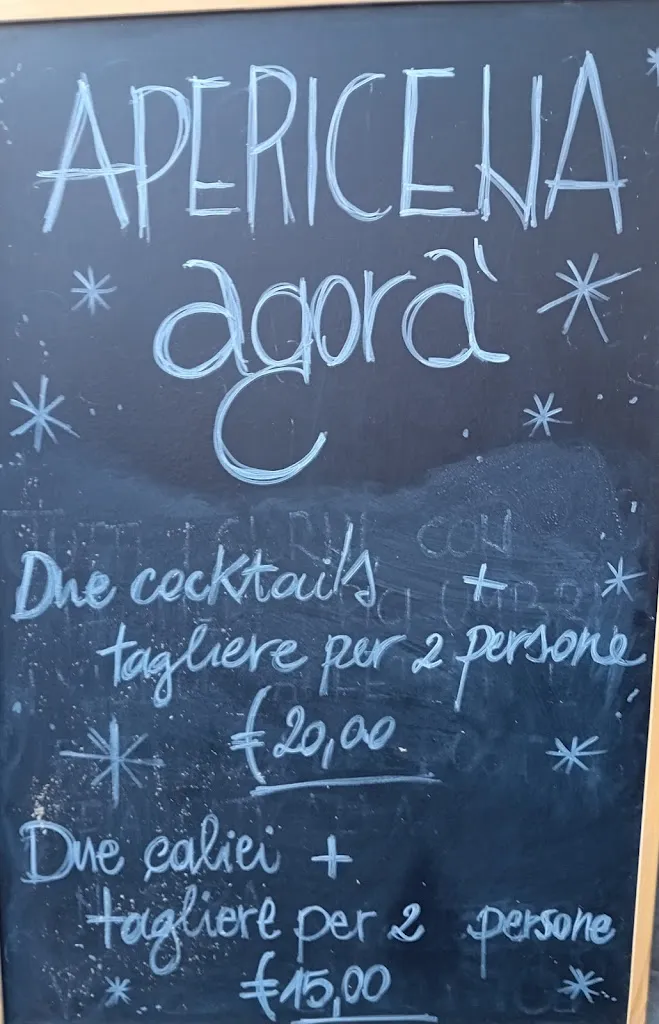 APERICENA
agorà
Due cocktails +
tagliere per 2 persone
€20,00
Due calici +
tagliere per 2 persone
€15,00